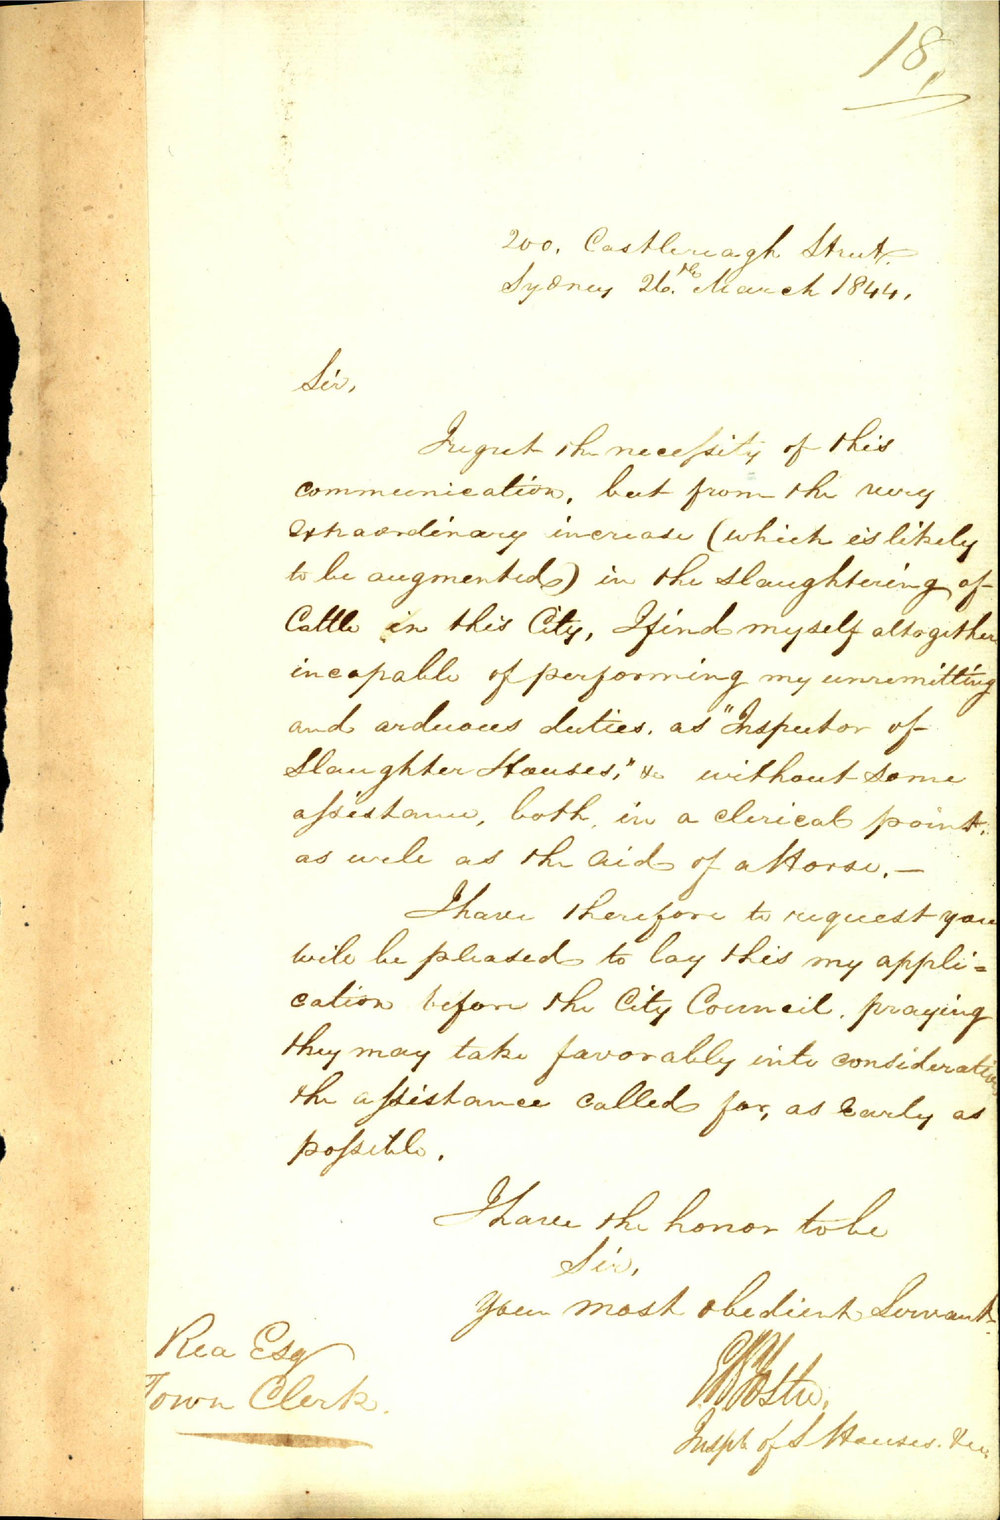 18,
200, Castlereagh Street.
Sydney 26.th March 1844.
Sir,
I regret the necessity of this
communication, but from the very
extraordinary increase (which is likely
to be augmented) in the slaughtering of
Cattle in this City, I find myself altogether
incapable of performing my unremitting
and arduous duties, as "Inspector of
Slaughter Houses," &c without some
assistance, both, in a clerical point,
as well as the aid of a Horse.—
I have therefore to request you
will be pleased to lay this my appli=
cation before the City Council, praying
they may take favorably into consideration
the assistance called for, as Early as
possible.
I have the honor to be
Sir,
Your most obedient Servant.
Inspr. of S Houses. &c
Rea Esq
Town Clerk.